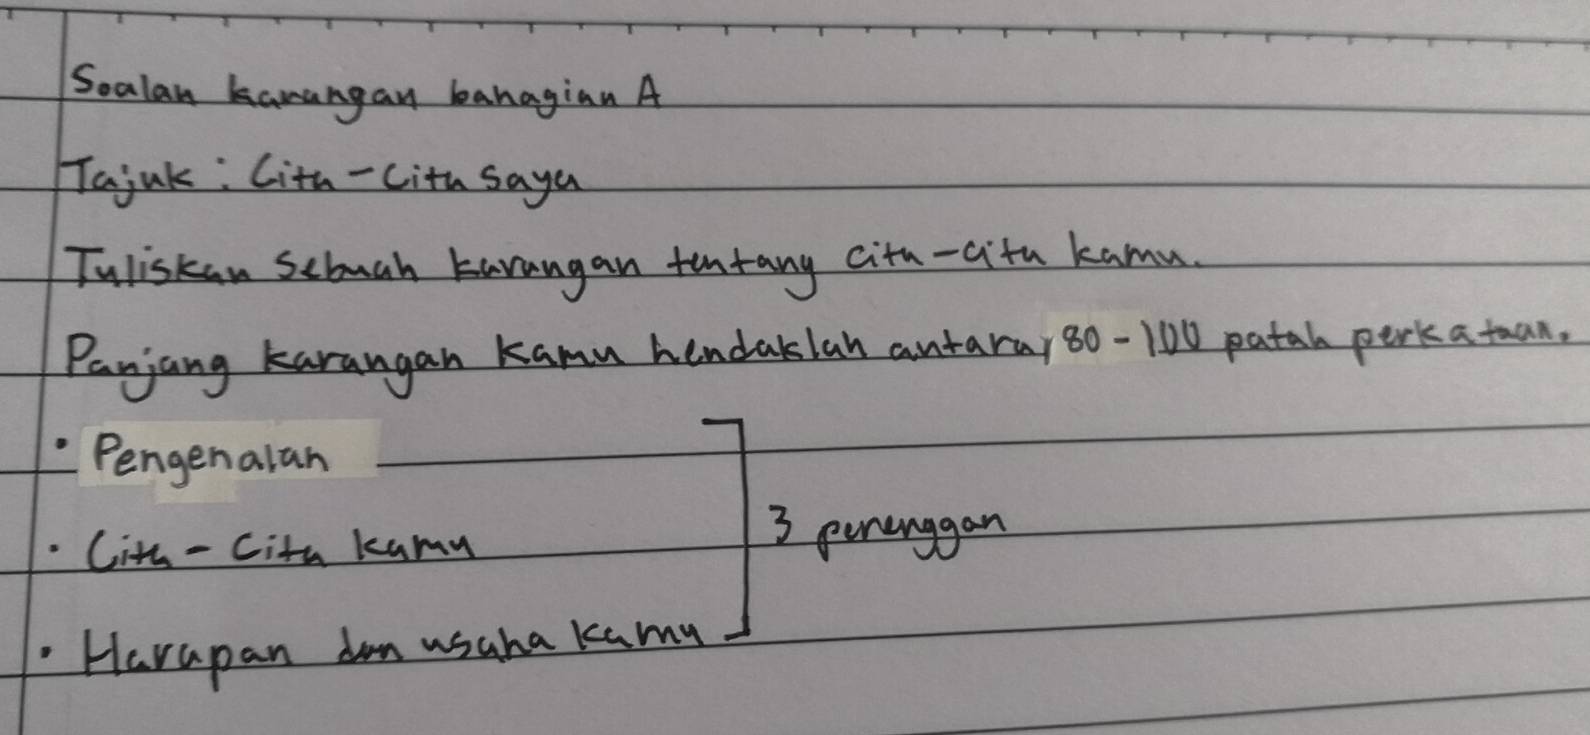 Soalan karangan bahagian A
Tajuk : Cita-Cita saya
Tuliskan sebuah karangan tentang cita-cita kamu.
Panjang karangan kamu hendaklah antara, 80-100 patah perkataan.
• Pengenalan
• Cita-Cita kamu
3 perenggan
• Harapan dan usaha kamu